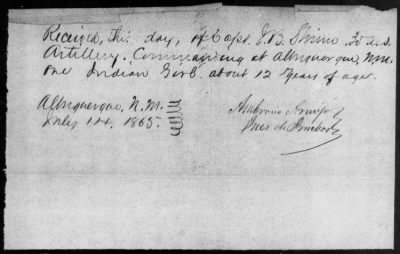 Received, this day, of Capt. E. B. 3d U.S.
Artillery. Commanding at Albuquerque, N.M.
One Indian Girl. about 12 Years of age.
Albuquerque, N.M.
July 14. 1865.
Ambrosio Armijo